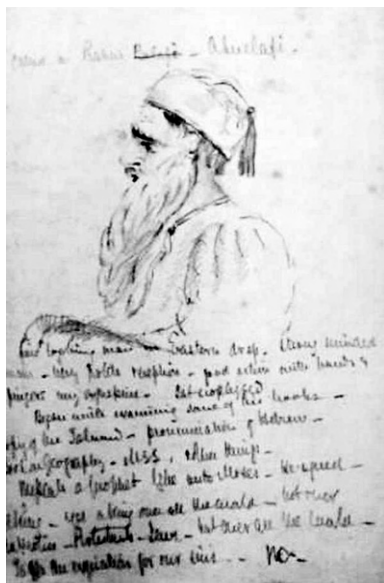 Rabbi Abuelafi.
fine looking man in Eastern dress - strong minded
man - very polite reception - good action with hands &
fingers very expressive - Sat crosslegged
Began with examining some of his books -
copy of the Talmud - pronunciation of Hebrew -
book on Geography - MSS, & other things.
a prophet like unto Moses - He agreed -
was a king over all the world - not over
Protestants - Jews - but over all the world -
the expiation for our sins - No -